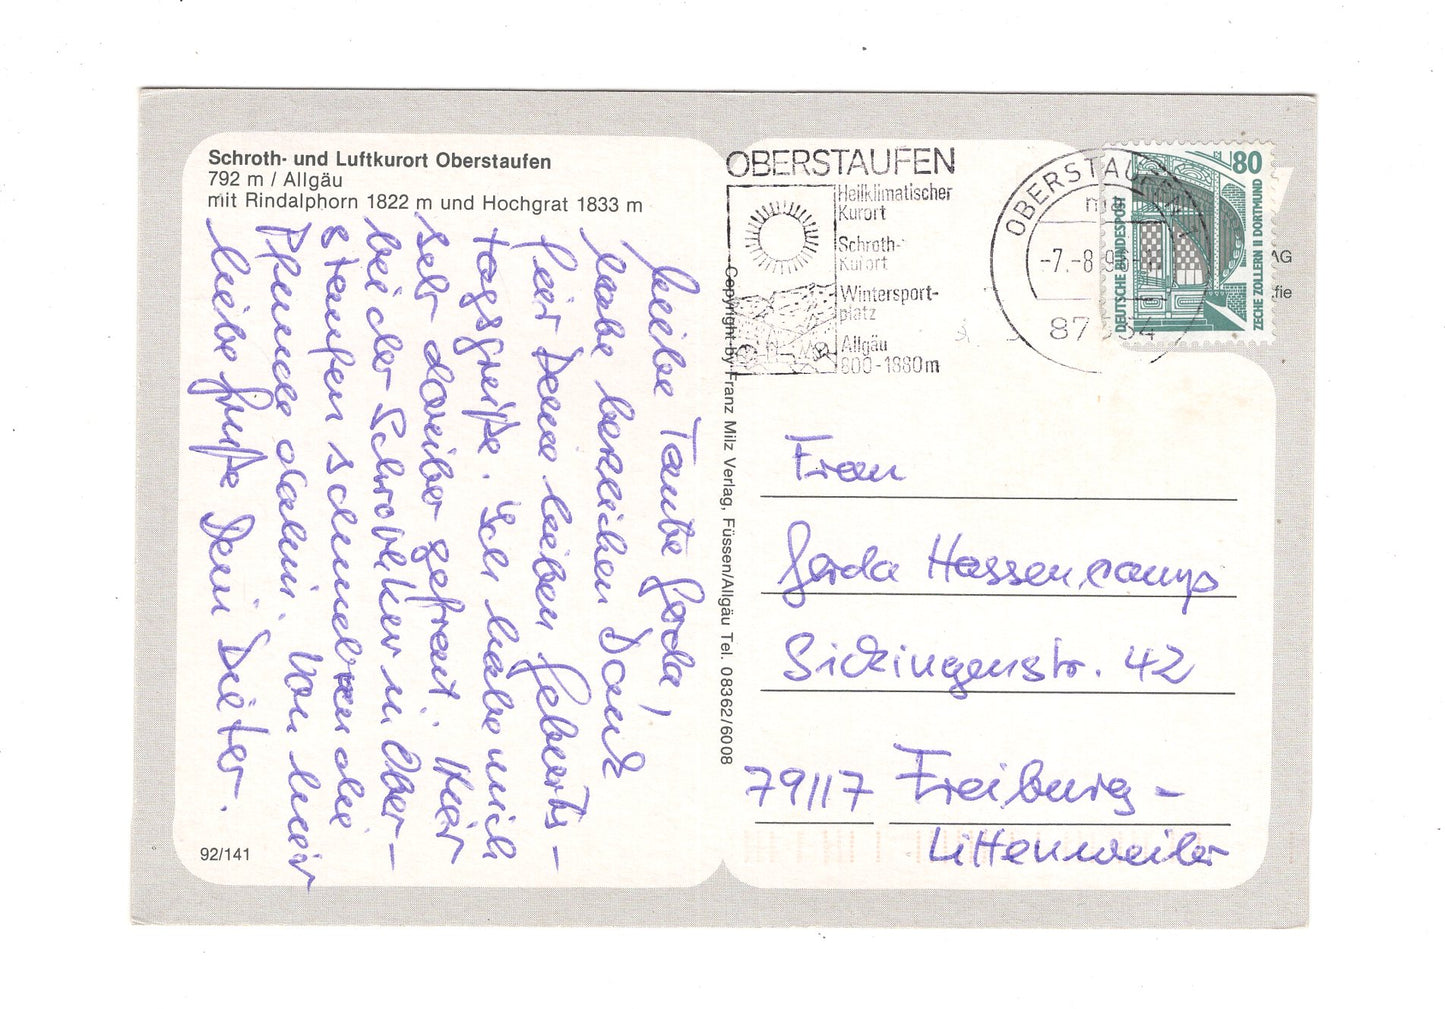 Schroth- und Luftkurort Oberstaufen
792 m / Allgäu
mit Rindalphorn 1822 m und Hochgrat 1833 m
Liebe Tante Gerda,
habe herzlichen Dank
für Deine lieben Geburts-
tagsgrüße. Ich habe mich
sehr darüber gefreut. Hier
bei der Schrothkur in Ober-
staufen schmelzen die
Pfunde dahin. Von hier
liebe Grüße Dein Dieter.
92/141
Copyright by Franz Milz Verlag, Füssen/Allgäu Tel. 08362/6008
OBERSTAUFEN
Heilklimatischer
Kurort
Schroth-
Kurort
Wintersport-
platz
Allgäu
800-1880m
OBERSTAUFEN 1
-7.-8.9
87 34
80
DEUTSCHE BUNDESPOST
ZECHE ZOLLERN II DORTMUND
AG
fie
Frau
Gerda Hassencamp
Sickingenstr. 42
79117 Freiburg-
Littenweiler